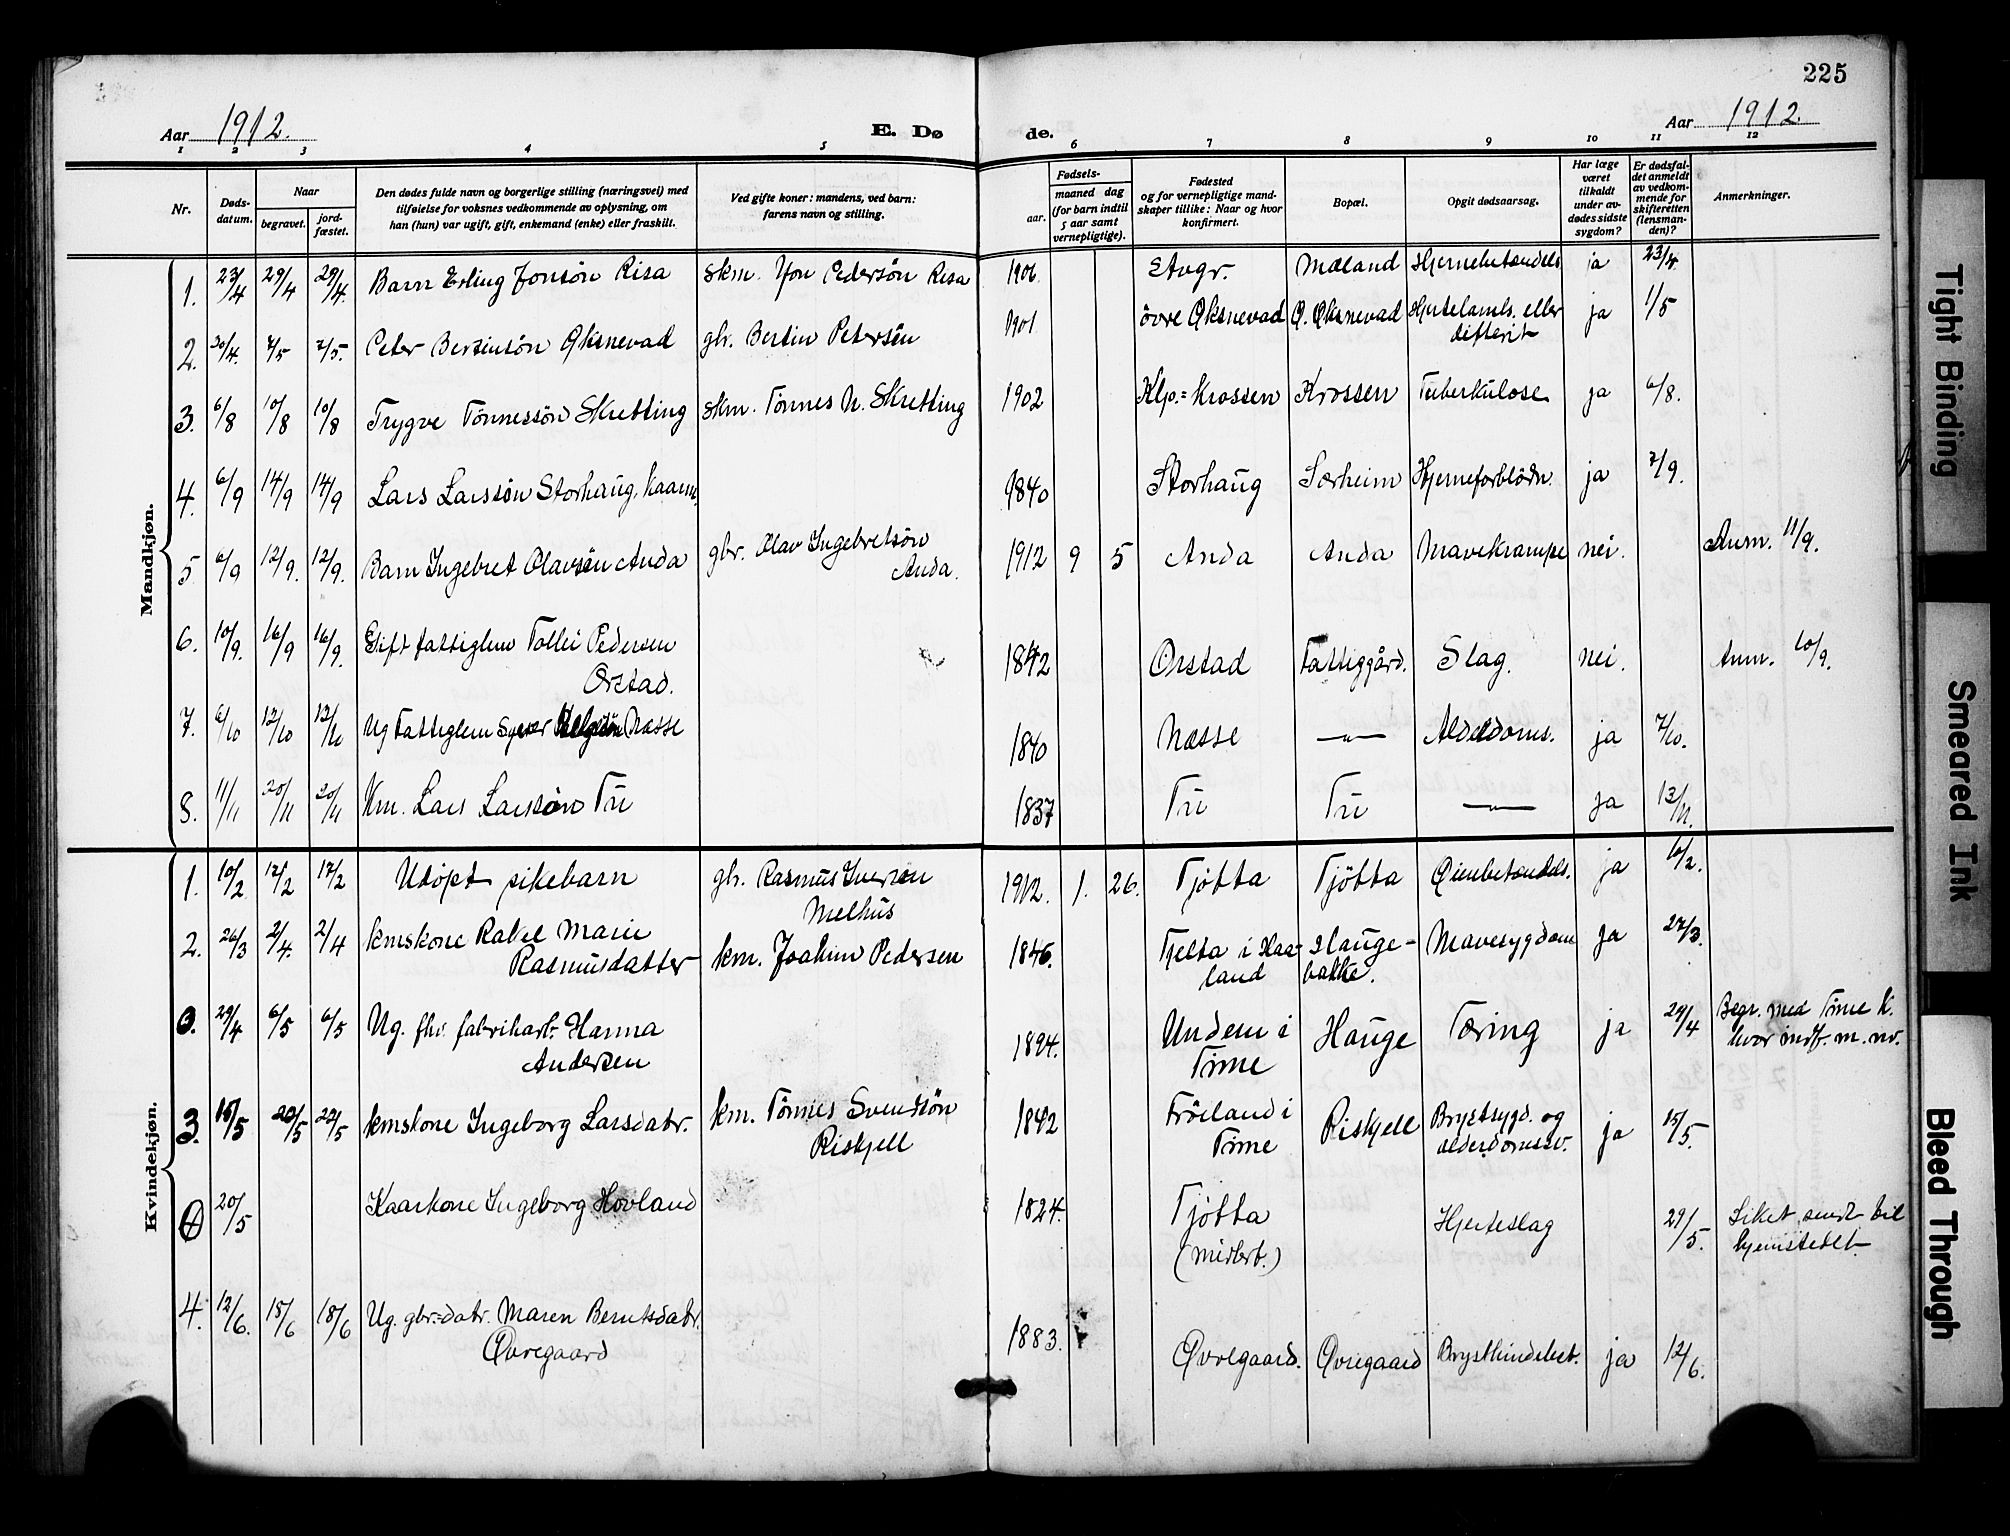 225
Aar 1912. E. Dø de. Aar 1912.
1 2 3 4 5 6 7 8 9 10 11 12
Nr. Døds-datum. Naar begravet. jord-fæstet. Den dødes fulde navn og borgerlige stilling (næringsvei) med tilføielse for voksnes vedkommende av oplysning, om han (hun) var ugift, gift, enkemand (enke) eller fraskilt. Ved gifte koner: mandens, ved barn: farens navn og stilling. Fødsels- aar. maaned dag (for barn indtil 5 aar samt vernepligtige). Fødested og for vernepligtige mand-skaper tillike: Naar og hvor konfirmert. Bopæl. Opgit dødsaarsag. Har læge været tilkaldt under av-dødes sidste sygdom? Er dødsfal-det anmeldt av vedkom-mende for skifteretten (lensman-den)? Anmerkninger.
Mandkjøn.
1. 23/4 29/4 29/4. Barn Erling Jonsön Risa skm. Jon Pedersön Risa 1906 Stvgr. Mæland Hjernebetændels. ja 23/4.
2. 30/4. 7/5 7/5. Peter Bertinsön Øksnevad gbr. Bertin Petersön 1901 övre Øksnevad Ö. Øksnevad Hjertelamh. eller ja 1/5
difterit
3. 6/8 10/8 10/8 Trygve Tönnessön Skretting skm. Tönnes N. Skretting 1902 Klp.= Krossen Krossen Tuberkulose ja 6/8.
4. 6/9 14/9 14/9 Lars Larssön Storhaug, kaarm. 1840 Storhaug Særheim Hjerneforblödn. ja 7/9.
5. 6/9 12/9. 12/9. Barn Ingebret Olavsön Anda gbr. Olav Ingebretsön
Anda. 1912 9 5 Anda Anda Mavekrampe nei. Anm. 11/9.
6. 10/9. 16/9 16/9. Gift fattiglem Tollei Pedersen
Orstad. 1842 Orstad Fattiggård. Slag. nei. Anm. 10/9.
7. 6/10 12/10 12/10 Ug Fattiglem Syver Næsse 1840 Næsse —"— Alderdoms. ja 7/10.
8. 11/11 20/11 20/11 Km. Lars Larssön Tu 1837 Tu Tu —"— ja 13/11.
Kvindekjøn.
1. 10/2 17/2 17/2 Udöpt pikebarn gbr. Rasmus Iversen
Melhus 1912. 1. 26. Tjötta Tjötta Öienbetændels. ja 10/2.
2. 26/3 2/4. 2/4 kmskone Rakel Marie
Rasmusdatter km. Joakim Pedersen 1846. Tjelta i Haa- Hauge- Mavesygdom ja 27/3.
land bakke.
0. 29/4 6/5 6/5 Ug. fhv. fabrikarb. Hanna
Andersen 1894. Undem i Hauge Tæring ja 29/4 Begr. ved Time k.
Time hvor indf. m. nr.
3. 15/5 20/5 20/5 kmskone Ingeborg Larsdatr. km. Tönnes Svendsön
Riskjell 1842 Fröiland i Riskjell Brystsygd. og ja 15/5.
Time alderdomssv.
0 20/5 Kaarkone Ingeborg Hovland 1824. Tjötta Hjerteslag 29/5. Liket sendt til
(midlert.) hjemstedet.
4. 12/6. 18/6 18/6 Ug. gbr.=datr. Maren Berntsdatr.
Øvregaard 1883. Øvregaard. Øvregaard Brysthindebet. ja 12/6.
Tight Binding
Smeared Ink
Bleed Through